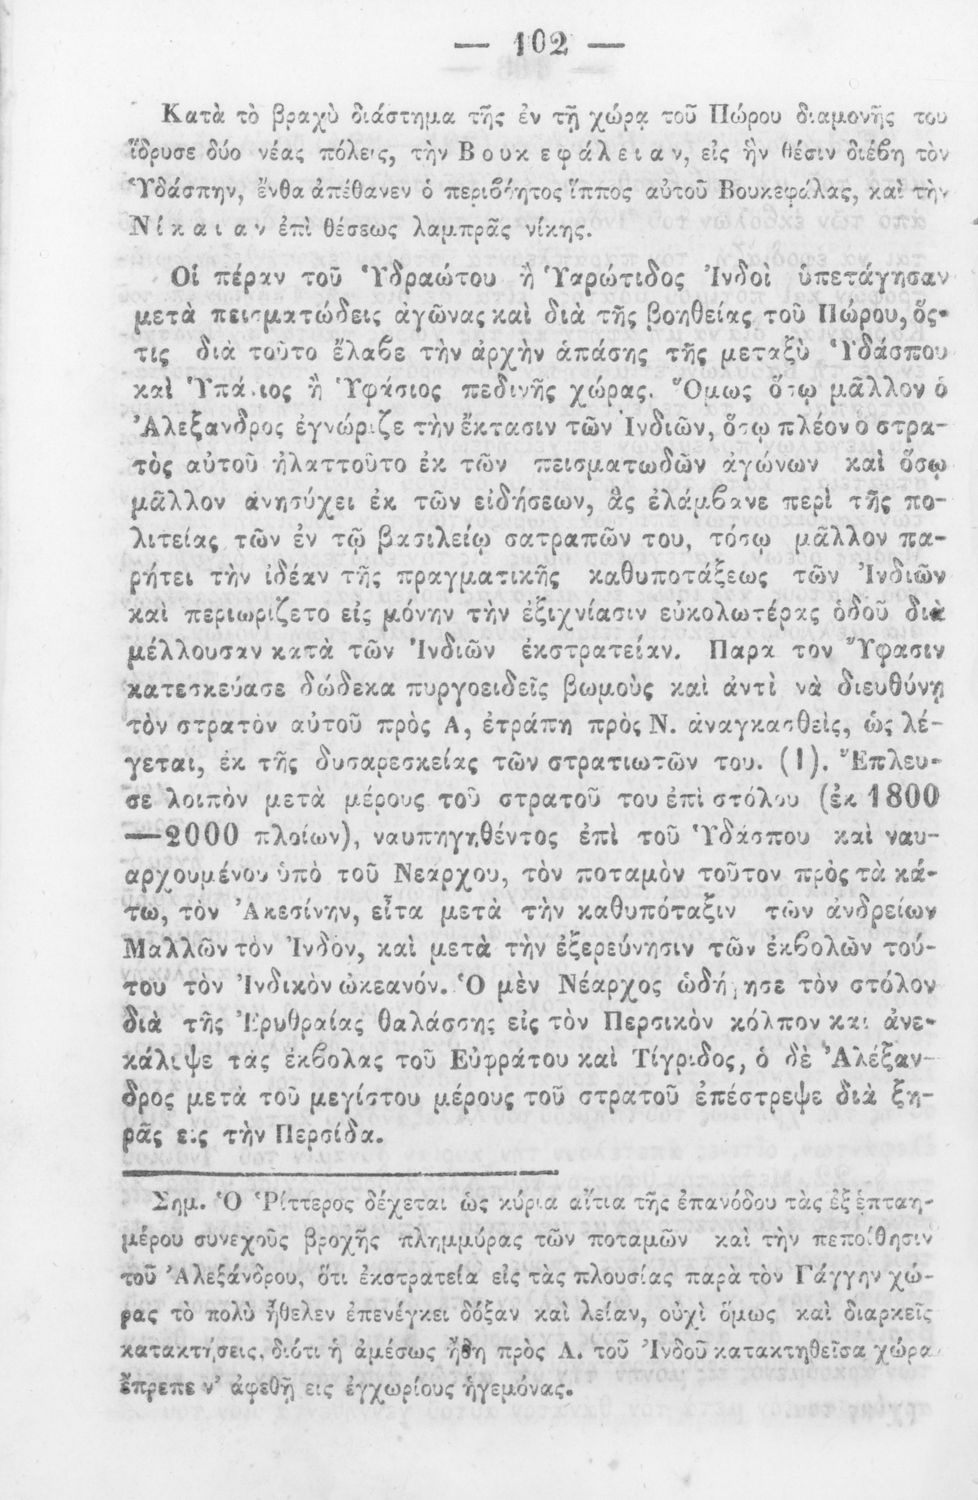 — 102 —
Κατὰ τὸ βραχὺ διάστημα τῆς ἐν τῇ χώρᾳ τοῦ Πώρου διαμονῆς του
ἵδρυσε δύο νέας πόλεις, τὴν Βουκεφάλειαν, εἰς ἣν θέσιν διέβη τὸν
Ὑδάσπην, ἔνθα ἀπέθανεν ὁ περιβόητος ἵππος αὐτοῦ Βουκεφάλας, καὶ τὴν
Νίκαιαν ἐπὶ θέσεως λαμπρᾶς νίκης.
Οἱ πέραν τοῦ Ὑδραώτου ἢ Ὑαρώτιδος Ἰνδοὶ ὑπετάγησαν
μετὰ πεισματώδεις ἀγῶνας καὶ διὰ τῆς βοηθείας τοῦ Πώρου, ὅς-
τις διὰ τοῦτο ἔλαβε τὴν ἀρχὴν ἁπάσης τῆς μεταξὺ Ὑδάσπου
καὶ Ὑπάνιος ἢ Ὑφάσιος πεδινῆς χώρας. Ὅμως ὅσῳ μᾶλλον ὁ
Ἀλεξανδρος ἐγνώριζε τὴν ἔκτασιν τῶν Ἰνδιῶν, ὅσῳ πλέον ὁ στρα-
τὸς αὐτοῦ ἠλαττοῦτο ἐκ τῶν πεισματωδῶν ἀγώνων καὶ ὅσῳ
μᾶλλον ἀνησύχει ἐκ τῶν εἰδήσεων, ἃς ἐλάμβανε περὶ τῆς πο-
λιτείας τῶν ἐν τῷ βασιλείῳ σατραπῶν του, τόσῳ μᾶλλον πα-
ρήτει τὴν ἰδέαν τῆς πραγματικῆς καθυποτάξεως τῶν Ἰνδιῶν
καὶ περιωρίζετο εἰς μόνην τὴν ἐξιχνίασιν εὐκολωτέρας ὁδοῦ διὰ
μέλλουσαν κατὰ τῶν Ἰνδιῶν ἐκστρατείαν. Παρα τον Ὕφασιν
κατεσκεύασε δώδεκα πυργοειδεῖς βωμοὺς καὶ ἀντὶ νὰ διευθύνῃ
τὸν στρατὸν αὐτοῦ πρὸς Α, ἐτράπη πρὸς Ν. ἀναγκασθεὶς, ὡς λέ-
γεται, ἐκ τῆς δυσαρεσκείας τῶν στρατιωτῶν του. (1). Ἔπλευ-
σε λοιπὸν μετὰ μέρους τοῦ στρατοῦ του ἐπὶ στόλου (ἐκ 1800
—2000 πλοίων), ναυπηγηθέντος ἐπὶ τοῦ Ὑδάσπου καὶ ναυ-
αρχουμένου ὑπὸ τοῦ Νεάρχου, τὸν ποταμὸν τοῦτον πρὸς τὰ κά-
τω, τὸν Ἀκεσίνην, εἶτα μετὰ τὴν καθυπόταξιν τῶν ἀνδρείων
Μαλλῶν τὸν Ἰνδὸν, καὶ μετὰ τὴν ἐξερεύνησιν τῶν ἐκβολῶν τού-
του τὸν Ἰνδικὸν ὠκεανόν. Ὁ μὲν Νέαρχος ὡδήγησε τὸν στόλον
διὰ τῆς Ἐρυθραίας θαλάσσης εἰς τὸν Περσικὸν κόλπον καὶ ἀνε-
κάλυψε τὰς ἐκβολὰς τοῦ Εὐφράτου καὶ Τίγριδος, ὁ δὲ Ἀλέξαν-
δρος μετὰ τοῦ μεγίστου μέρους τοῦ στρατοῦ ἐπέστρεψε διὰ ξη-
ρᾶς εἰς τὴν Περσίδα.
Σημ. Ὁ Ῥίττερος δέχεται ὡς κύρια αἴτια τῆς ἐπανόδου τὰς ἐξ ἑπταη-
μέρου συνεχοῦς βροχῆς πλημμύρας τῶν ποταμῶν καὶ τὴν πεποίθησιν
τοῦ Ἀλεξάνδρου, ὅτι ἐκστρατεία εἰς τὰς πλουσίας παρὰ τὸν Γάγγην χώ-
ρας τὸ πολὺ ἤθελεν ἐπενέγκει δόξαν καὶ λείαν, οὐχὶ ὅμως καὶ διαρκεῖς
κατακτήσεις, διότι ἡ ἀμέσως ἤδη πρὸς Α. τοῦ Ἰνδοῦ κατακτηθεῖσα χώρα
ἔπρεπε ν' ἀφεθῇ εις ἐγχωρίους ἡγεμόνας.